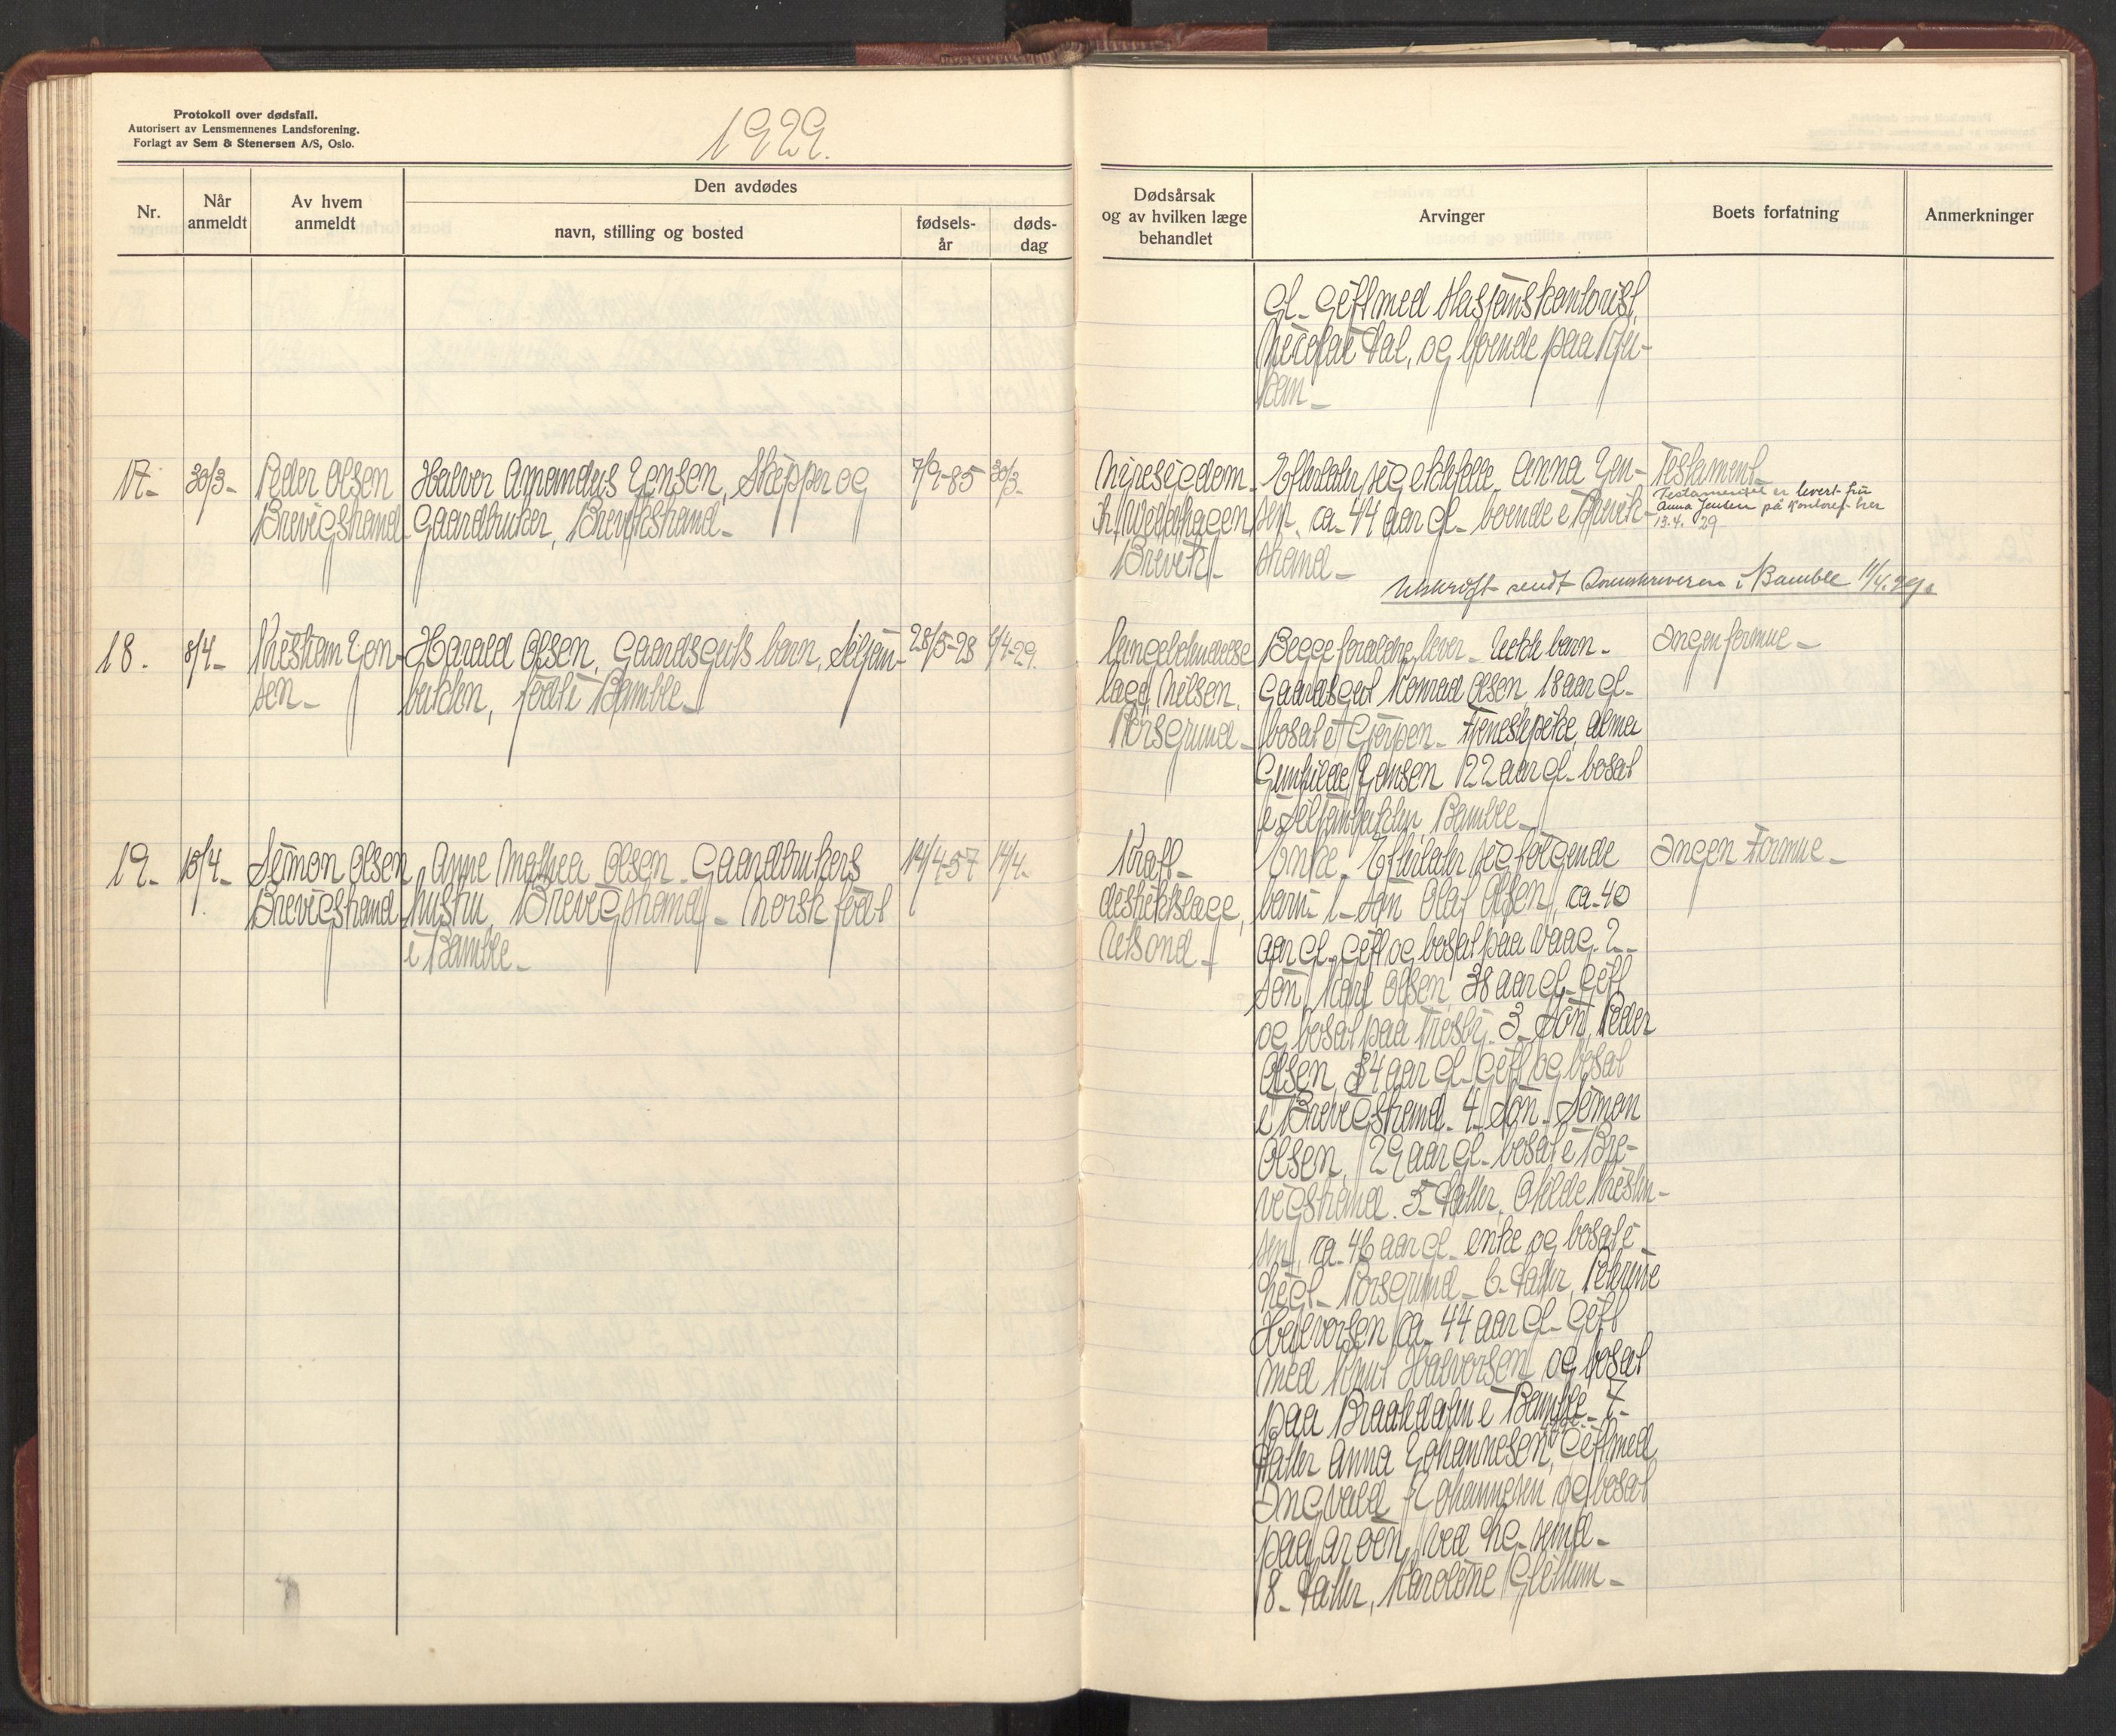 Protokoll over dødsfall.
Autorisert av Lensmennenes Landsforening.
Forlagt av Sem & Stenersen A/S, Oslo.
1929.
Nr.
Når anmeldt
Av hvem anmeldt
Den avdødes
navn, stilling og bosted
fødsels-år
døds-dag
Dødsårsak
og av hvilken læge
behandlet
Arvinger
Boets forfatning
Anmerkninger
gl. Gift med Stasjonskontorist,
Nicolai Dal, og boende paa Rju-
kan
17.
30/3
Peder Olsen
Brevigstrand
Halvor Amandus Jensen, Skipper og
Gaardbruker, Brevikstrand
7/9-85
30/3
Nyresygdom
Brevik
Efterlater sig ektefelle Anna Jen-
sen ca. 44 aar gl. boende i Brevik-
strand
Testament
Testamentet er levert fru
Anna Jensen på kontoret her
13.4.29
Utskrift sendt Sorenskriveren i Bamble 11/4.29.
18.
8/4
Kristian Jen-
sen
Harald Olsen, Gaardsguts barn,
født i Bamble
28/5-28
4/4-29.
Lungebetændelse
læge Nilsen,
Porsgrund
Begge foraldre lever. Uekte barn.
Gaardsgut Konrad Olsen, 18 aar gl.
bosat i Gjerpen. Tjenestepike Alma
Gunhilde Jensen 22 aar gl. bosat
i Bamble
Ingen formue
19.
15/4
Simon Olsen
Brevigstrand
Anne Mathea Olsen. Gaardbrukers
hustru, Brevigstrand. Norsk født
i Bamble.
14/4-57
14/4.
Kraft
distriktslæge,
Enke. Efterlater sig følgende
barn: 1. Søn Olaf Olsen, ca. 40
aar gl. gift og bosat paa Vaag. 2.
Søn, Karl Olsen 38 aar gl. gift
og bosat paa Trosby. 3. Søn, Peder
Olsen, 34 aar gl. gift og bosat
i Brevigstrand. 4. Søn. Simon
Olsen, 29 aar gl. bosat i Bre-
vigstrand. 5. Datter, Kristen-
sen, ca. 46 aar gl. enke og bosat i
Porsgrund. 6. Datter, Petrine
Halvorsen ca. 44 aar gl. Gift
med Knut Halvorsen og bosat
paa Braatedalen i Bamble. 7.
Datter Anna Johannesen, Gift med
Ingvald Johannesen og bosat
paa Arøen ved
8. Datter, Karoline
Ingen Formue